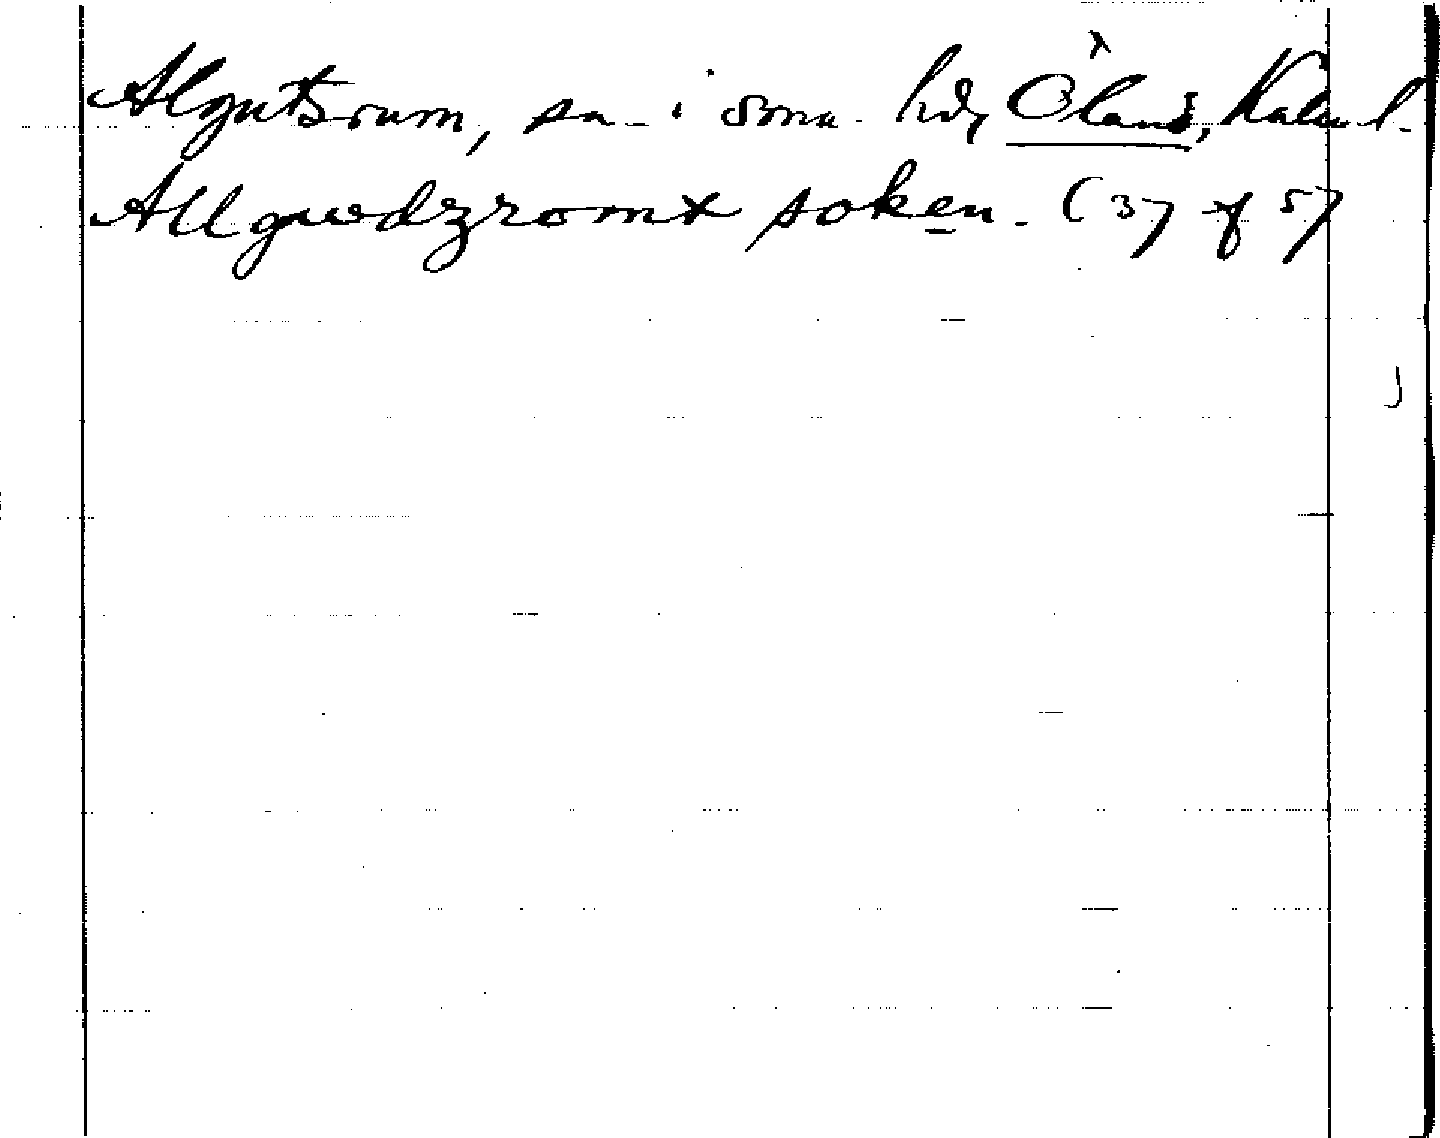 Algutsrum, sn i sma hd, Öland, Kalm l.
Allguedzromx soken. (37 af 57